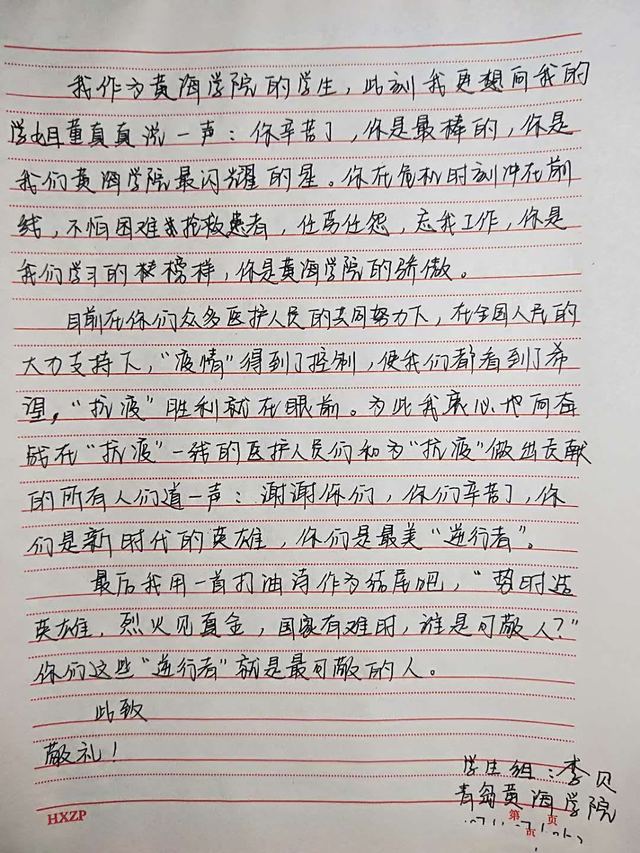 我作为黄海学院的学生，此刻我更想向我的
学姐童真真说一声：你辛苦了，你是最棒的，你是
我们黄海学院最闪耀的星。你在危机时刻冲在前
线，不怕困难抢救患者，任劳任怨，忘我工作，你是
我们学习的榜样，你是黄海学院的骄傲。
目前在你们众多医护人员的共同努力下，在全国人民的
大力支持下，“疫情”得到了控制，使我们都看到了希
望，“抗疫”胜利就在眼前。为此我衷心地向奋
战在“抗疫”一线的医护人员们和为“抗疫”做出贡献
的所有人们道一声：谢谢你们，你们辛苦了，你
们是新时代的英雄，你们是最美“逆行者”。
最后我用一首打油诗作为结尾吧，“势时造
英雄，烈火见真金，国家有难时，谁是可敬人？”
你们这些“逆行者”就是最可敬的人。
此致
敬礼！
学生组：李贝
青岛黄海学院
HXZP
第 页
页